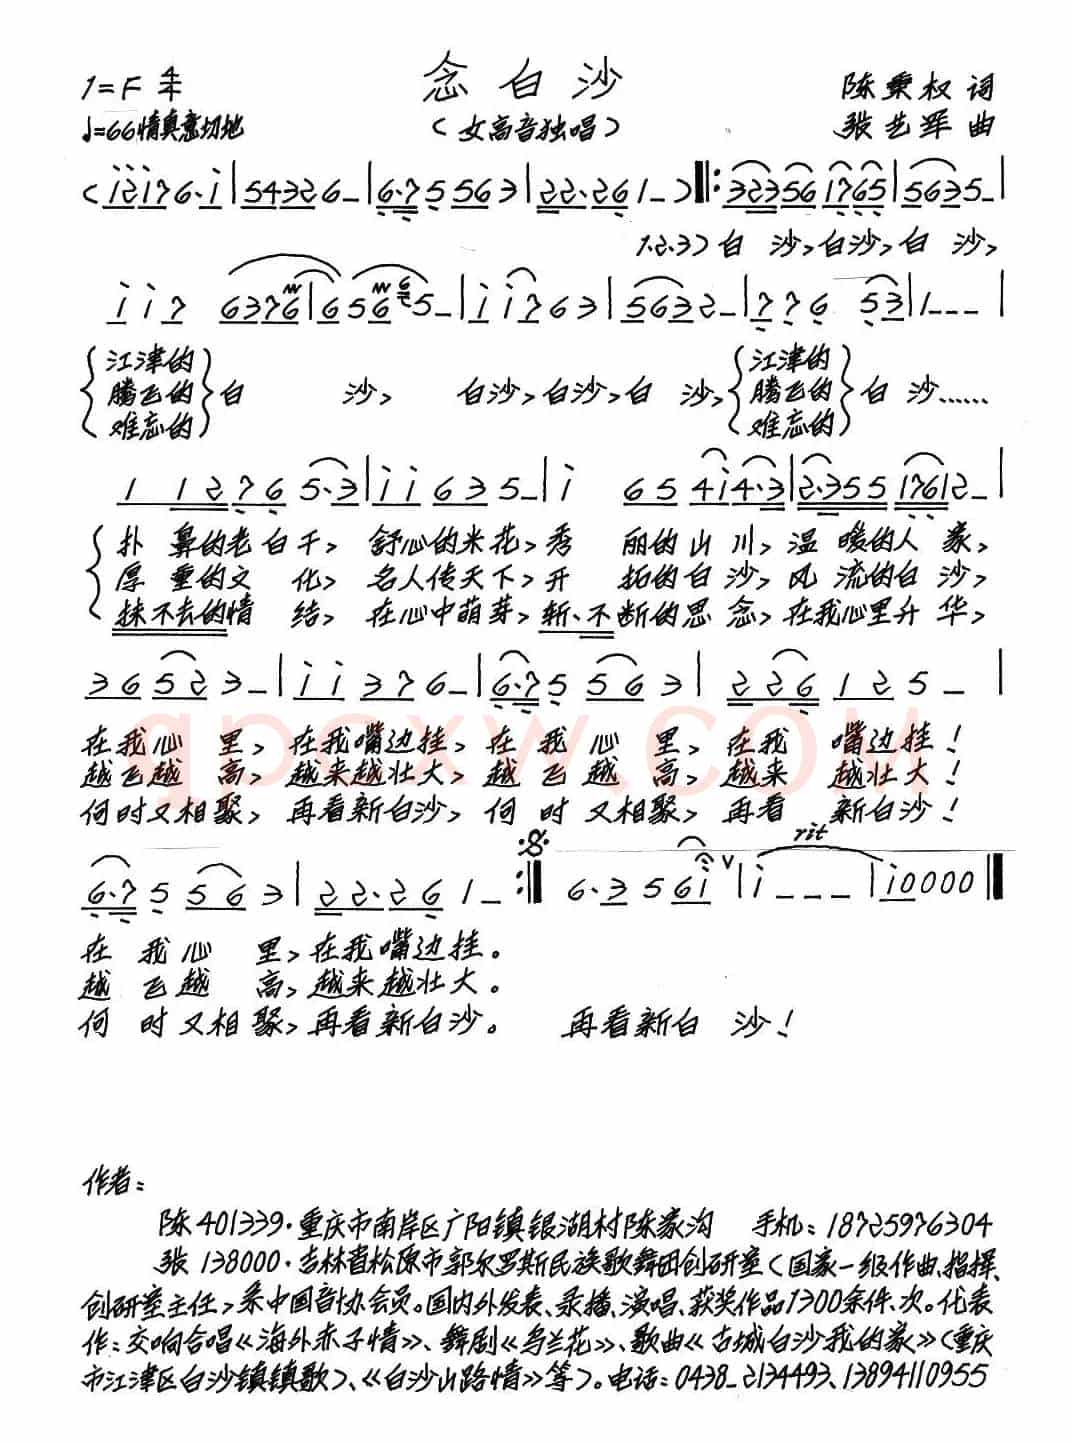 念白沙
1=F 4/4
陈秉权 词
♩=66 情真意切地
(女高音独唱)
张艺军 曲
(i2i76·i|54326-|6·75563|22·261-)‖:323561765|5635-|
1.2.3)白 沙,白沙,白 沙,
i i 7 6376|6565-|i i763|5632-|776 53|1---|
江津的
腾飞的 白 沙, 白沙,白沙,白 沙,
难忘的
江津的
腾飞的 白 沙……
难忘的
1 1276 5·3|i i 635-|i 65 4i4·3|2·355 17612-|
扑 鼻的老白干, 舒心的米花,秀 丽的山川,温 暖的人 家,
厚 重的文 化, 名人传天下,开 拓的白沙,风 流的白 沙,
抹不去的情 结, 在心中萌芽,斩、不断的思 念,在我心里升 华,
36523-|i i 376-|6·75 563|226 125-|
在我心 里,在我嘴边挂,在 我 心 里,在我 嘴边挂!
越飞越 高,越来越壮大,越 飞 越 高,越来 越壮大!
何时又相聚,再看新白沙,何 时 又相聚,再看 新白沙!
rit
6·75 563|22·26 1-:‖6·3 5 6i ∨|i---|i0000‖
在 我心 里,在我嘴边挂。
越 飞越 高,越来越壮大。
何 时又相聚,再看新白沙。 再看新白 沙!
作者:
陈401339·重庆市南岸区广阳镇银湖村陈家沟 手机:18725976304
张 138000·吉林省松原市郭尔罗斯民族歌舞团创研室(国家一级作曲、指挥、
创研室主任,系中国音协会员。国内外发表、录播、演唱、获奖作品1300余件、次。代表
作:交响合唱《海外赤子情》、舞剧《乌兰花》、歌曲《古城白沙我的家》(重庆
市江津区白沙镇镇歌)、《白沙山路情》等)。电话:0438-2134493、13894110955
qpcxw.com